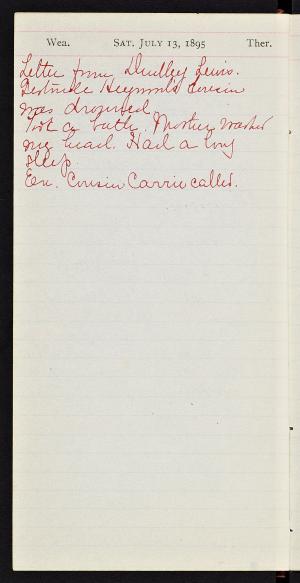 Wea. SAT. JULY 13, 1895 Ther.
Letter from Dudley Lewis.
Gertrude cousin
was drowned.
Took a bath. Mother washed
my head. Had a long
sleep.
Eve. Cousin Carrie called.